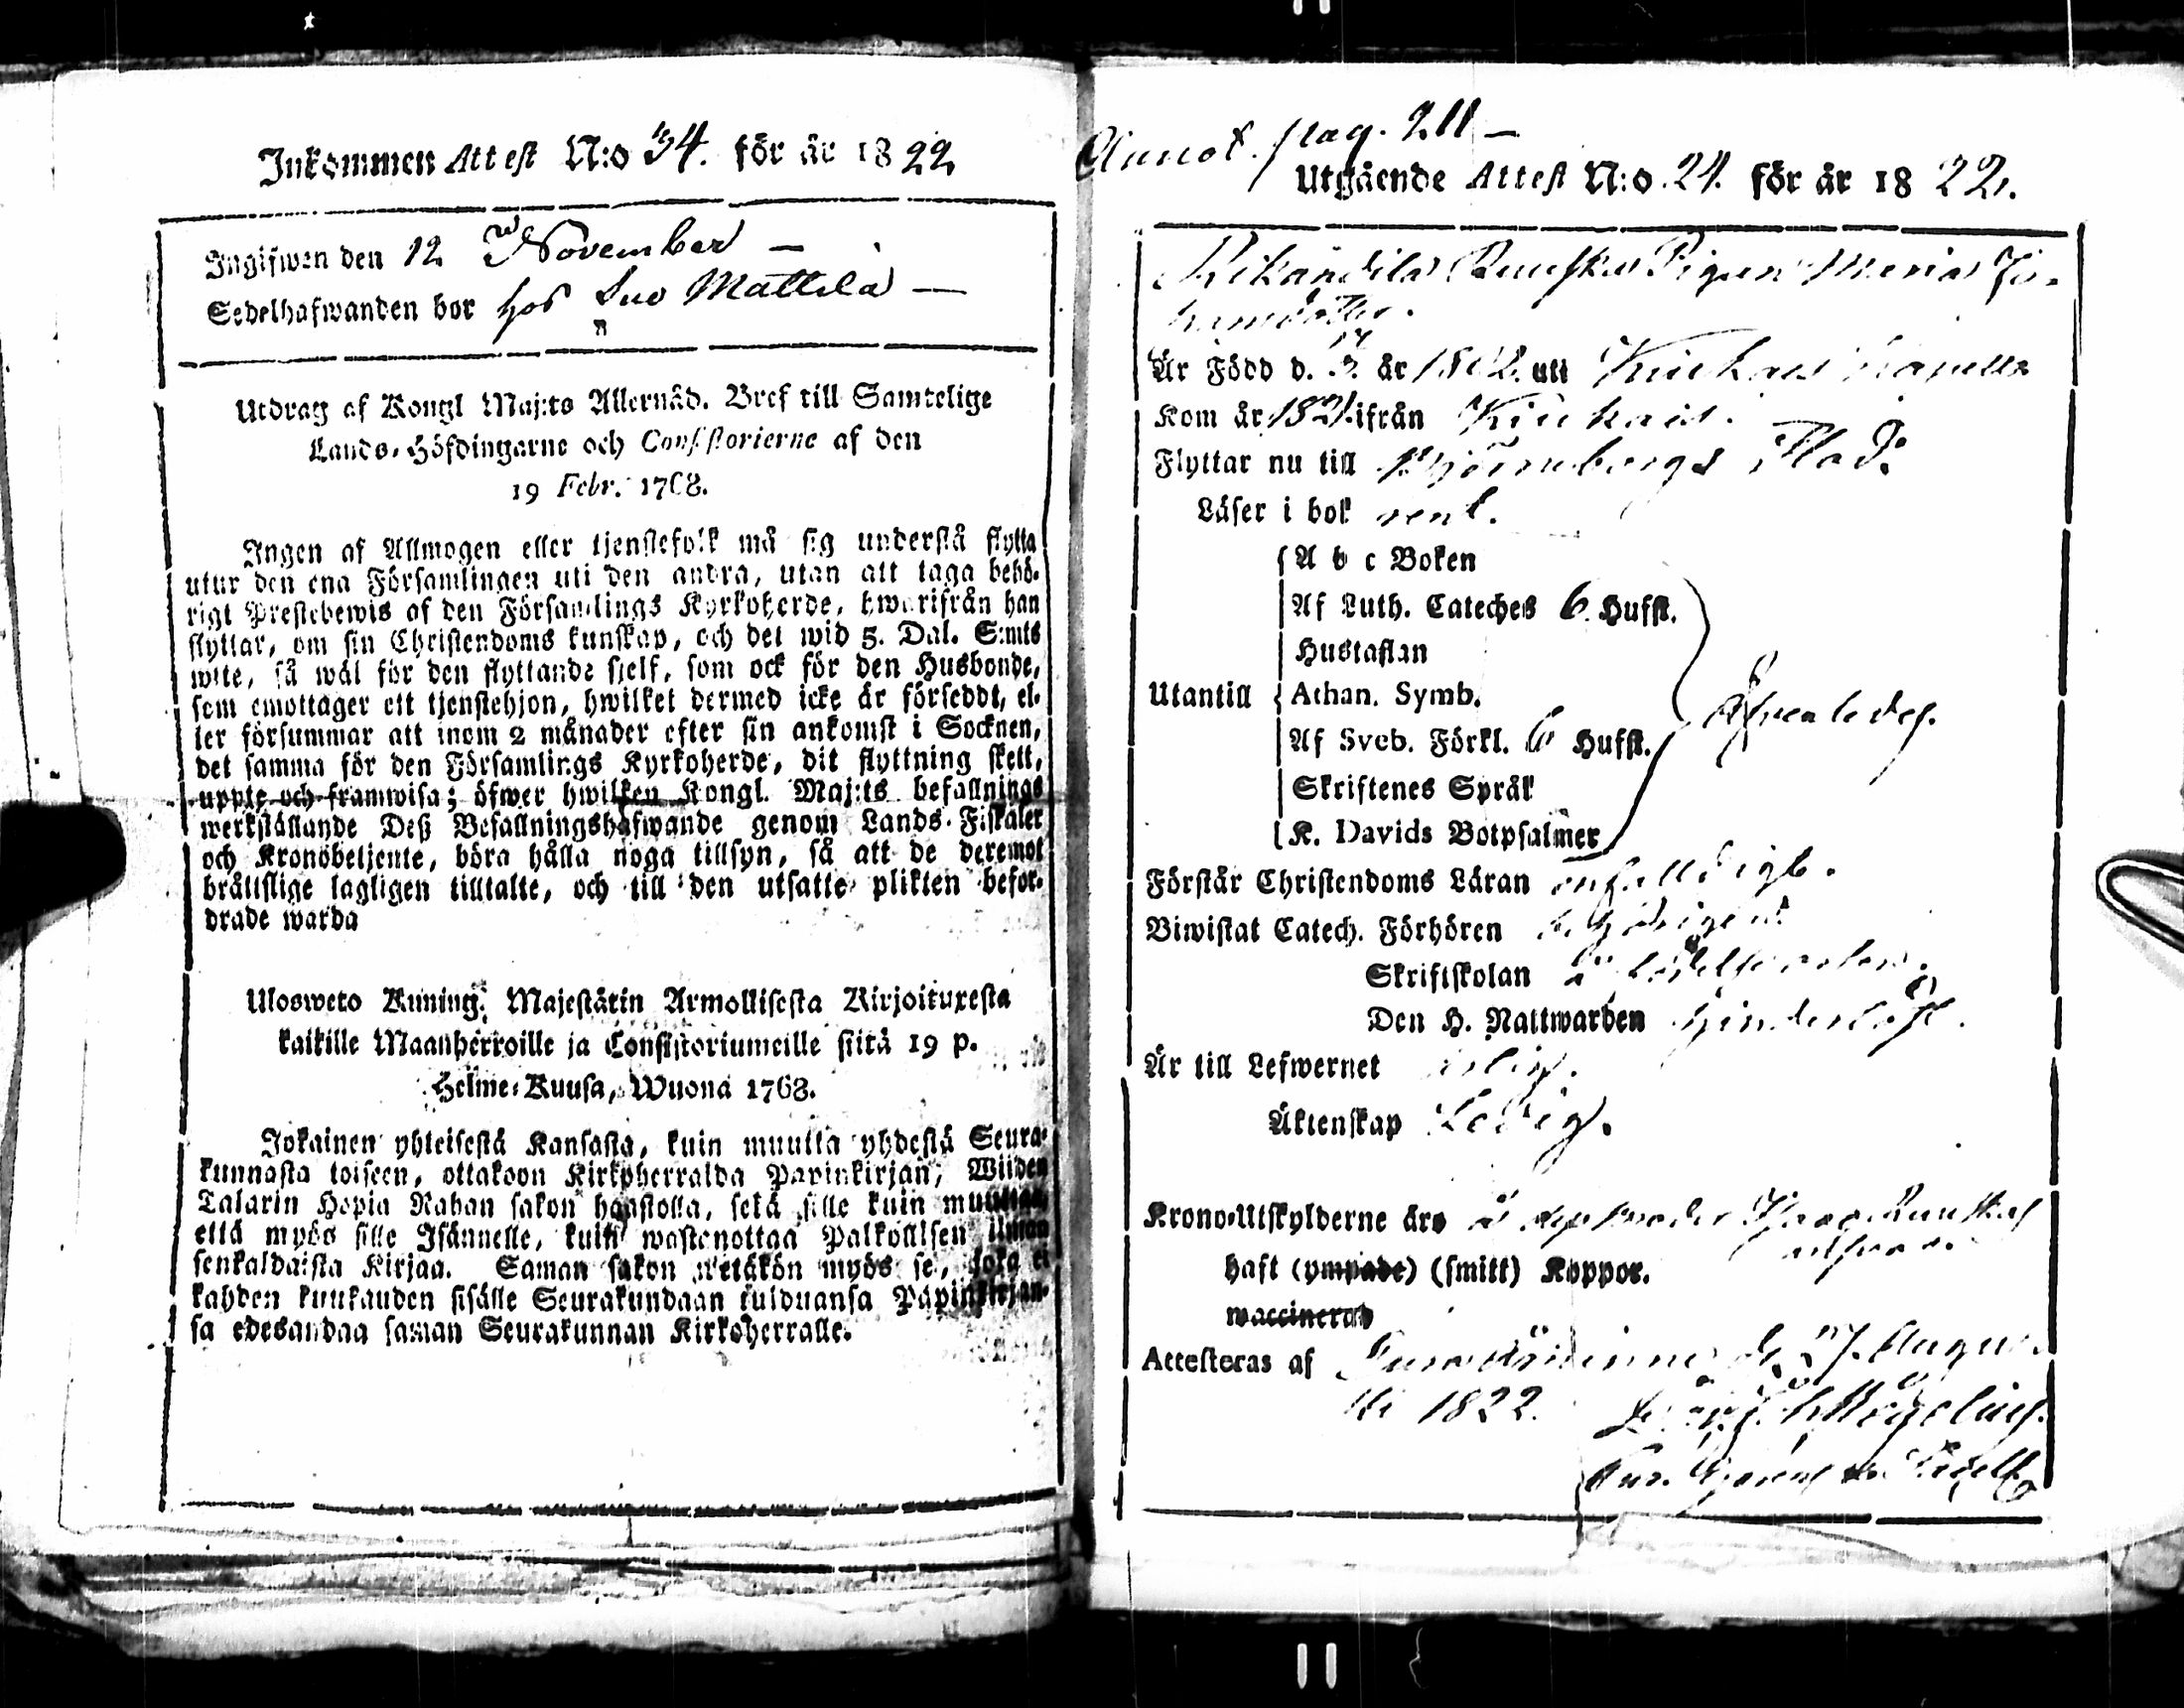 Inkommen Attest N:o 34. för år 1822
Ingifwen den 12 November —
Sedelhafwanden bor hos Suo Mattila —
Utdrag af Kongl Maj:ts Allernåd. Bref till Samtelige
Lands-Höfdingarne och Consistorierne af den
19 Febr. 1768.
Ingen af Allmogen eller tjenstefolk må sig understå flytta
utur den ena Församlingen uti den andra, utan att taga behö-
rigt Prestebewis af den Församlings Kyrkoherde, hwarifrån han
flyttar, om sin Christendoms kunskap, och det wid 5. Dal. S:mts
wite, så wäl för den flyttande sjelf, som ock för den Husbonde,
som emottager ett tjenstehjon, hwilket dermed icke är försedt, el-
ler försummar att inom 2 månader efter sin ankomst i Socknen,
det samma för den Församlings Kyrkoherde, dit flyttning skett,
uppte och framwisa; öfwer hwilken Kongl. Maj:ts befallnings
werkställande Deß Befallningshafwande genom Lands-Fiskaler
och Kronobetjente, böra hålla noga tillsyn, så att de deremot
bråttslige lagligen tilltalte, och till den utsatte plikten befor-
drade warda
Ulosweto Kuning. Majestätin Armollisesta Kirjoituxesta
kaikille Maanherroille ja Consistoriumeille siitä 19 p.
Helme-Kuusa, Wuona 1768.
Jokainen yhteisestä Kansasta, kuin muutta yhdestä Seura-
kunnasta toiseen, ottakoon Kirkoherralda Papinkirjan, Wiiden
Talarin Hopia Rahan sakon haastolla, sekä sille kuin muuttaa
että myös sille Isännelle, kuin wastanottaa Palkollisen ilman
senkaldaista Kirjaa. Saman sakon wetäkön myös se, joka ei
kahden kuukauden sisälle Seurakundaan tulduansa Papinkirjan-
sa edesandaa saman Seurakunnan Kirkoherralle.
Annot. pag. 211 —
Utgående Attest N:o 24. för år 1822.
Pigan Maria Jo-
hansdotter.
Är Född d. år 1802. uti Kiukais Capell
Kom år 1821. ifrån Kiukais.
Flyttar nu till Björneborgs Stad.
Läser i bok rent.
A b c Boken
Af Luth. Cateches 6. Hufst.
Hustaflan
Utantill Athan. Symb.
Af Sveb. Förkl. 6 Hufst.
Skriftenes Språk
K. Davids Botpsalmer
Äfvenledes.
Förstår Christendoms Läran enfalldigt.
Biwistat Catech. Förhören
Skriftskolan
Den H. Nattwarden hinderlöst.
Är till Lefwernet
Äktenskap Ledig.
Krono-Utskylderne äro
haft (ympade) (smitt) Koppor.
waccinerad
Attesteras af d. 27. Augu-
sti 1822.